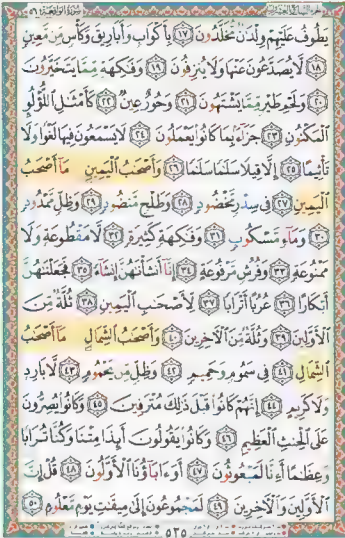 يَطُوفُ عَلَيْهِمْ وِلْدَٰنٌ مُّخَلَّدُونَ ١٧ بِأَكْوَابٍ وَأَبَارِيقَ وَكَأْسٍ مِّن مَّعِينٍ
١٨ لَّا يُصَدَّعُونَ عَنْهَا وَلَا يُنزِفُونَ ١٩ وَفَٰكِهَةٍ مِّمَّا يَتَخَيَّرُونَ
٢٠ وَلَحْمِ طَيْرٍ مِّمَّا يَشْتَهُونَ ٢١ وَحُورٌ عِينٌ ٢٢ كَأَمْثَٰلِ ٱللُّؤْلُؤِ
ٱلْمَكْنُونِ ٢٣ جَزَآءًۢ بِمَا كَانُوا۟ يَعْمَلُونَ ٢٤ لَا يَسْمَعُونَ فِيهَا لَغْوًا وَلَا
تَأْثِيمًا ٢٥ إِلَّا قِيلًا سَلَٰمًا سَلَٰمًا ٢٦ وَأَصْحَٰبُ ٱلْيَمِينِ مَآ أَصْحَٰبُ
ٱلْيَمِينِ ٢٧ فِى سِدْرٍ مَّخْضُودٍ ٢٨ وَطَلْحٍ مَّنضُودٍ ٢٩ وَظِلٍّ مَّمْدُودٍ
٣٠ وَمَآءٍ مَّسْكُوبٍ ٣١ وَفَٰكِهَةٍ كَثِيرَةٍ ٣٢ لَّا مَقْطُوعَةٍ وَلَا
مَمْنُوعَةٍ ٣٣ وَفُرُشٍ مَّرْفُوعَةٍ ٣٤ إِنَّآ أَنشَأْنَٰهُنَّ إِنشَآءً ٣٥ فَجَعَلْنَٰهُنَّ
أَبْكَارًا ٣٦ عُرُبًا أَتْرَابًا ٣٧ لِّأَصْحَٰبِ ٱلْيَمِينِ ٣٨ ثُلَّةٌ مِّنَ
ٱلْأَوَّلِينَ ٣٩ وَثُلَّةٌ مِّنَ ٱلْءَاخِرِينَ ٤٠ وَأَصْحَٰبُ ٱلشِّمَالِ مَآ أَصْحَٰبُ
ٱلشِّمَالِ ٤١ فِى سَمُومٍ وَحَمِيمٍ ٤٢ وَظِلٍّ مِّن يَحْمُومٍ ٤٣ لَّا بَارِدٍ
وَلَا كَرِيمٍ ٤٤ إِنَّهُمْ كَانُوا۟ قَبْلَ ذَٰلِكَ مُتْرَفِينَ ٤٥ وَكَانُوا۟ يُصِرُّونَ
عَلَى ٱلْحِنثِ ٱلْعَظِيمِ ٤٦ وَكَانُوا۟ يَقُولُونَ أَئِذَا مِتْنَا وَكُنَّا تُرَابًا
وَعِظَٰمًا أَءِنَّا لَمَبْعُوثُونَ ٤٧ أَوَءَابَآؤُنَا ٱلْأَوَّلُونَ ٤٨ قُلْ إِنَّ
ٱلْأَوَّلِينَ وَٱلْءَاخِرِينَ ٤٩ لَمَجْمُوعُونَ إِلَىٰ مِيقَٰتِ يَوْمٍ مَّعْلُومٍ ٥٠
٥٣٥